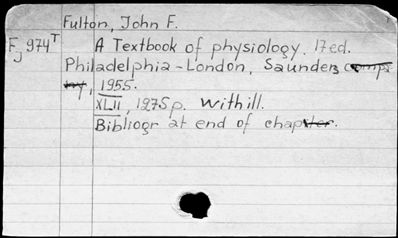 Fulton, John F.
FJ 974T A Textbook of physiology. 17ed.
Philadelphia-London, Saunders comp
ny, 1955.
XLII, 1275p. With ill.
Bibliogr at end of chapter.